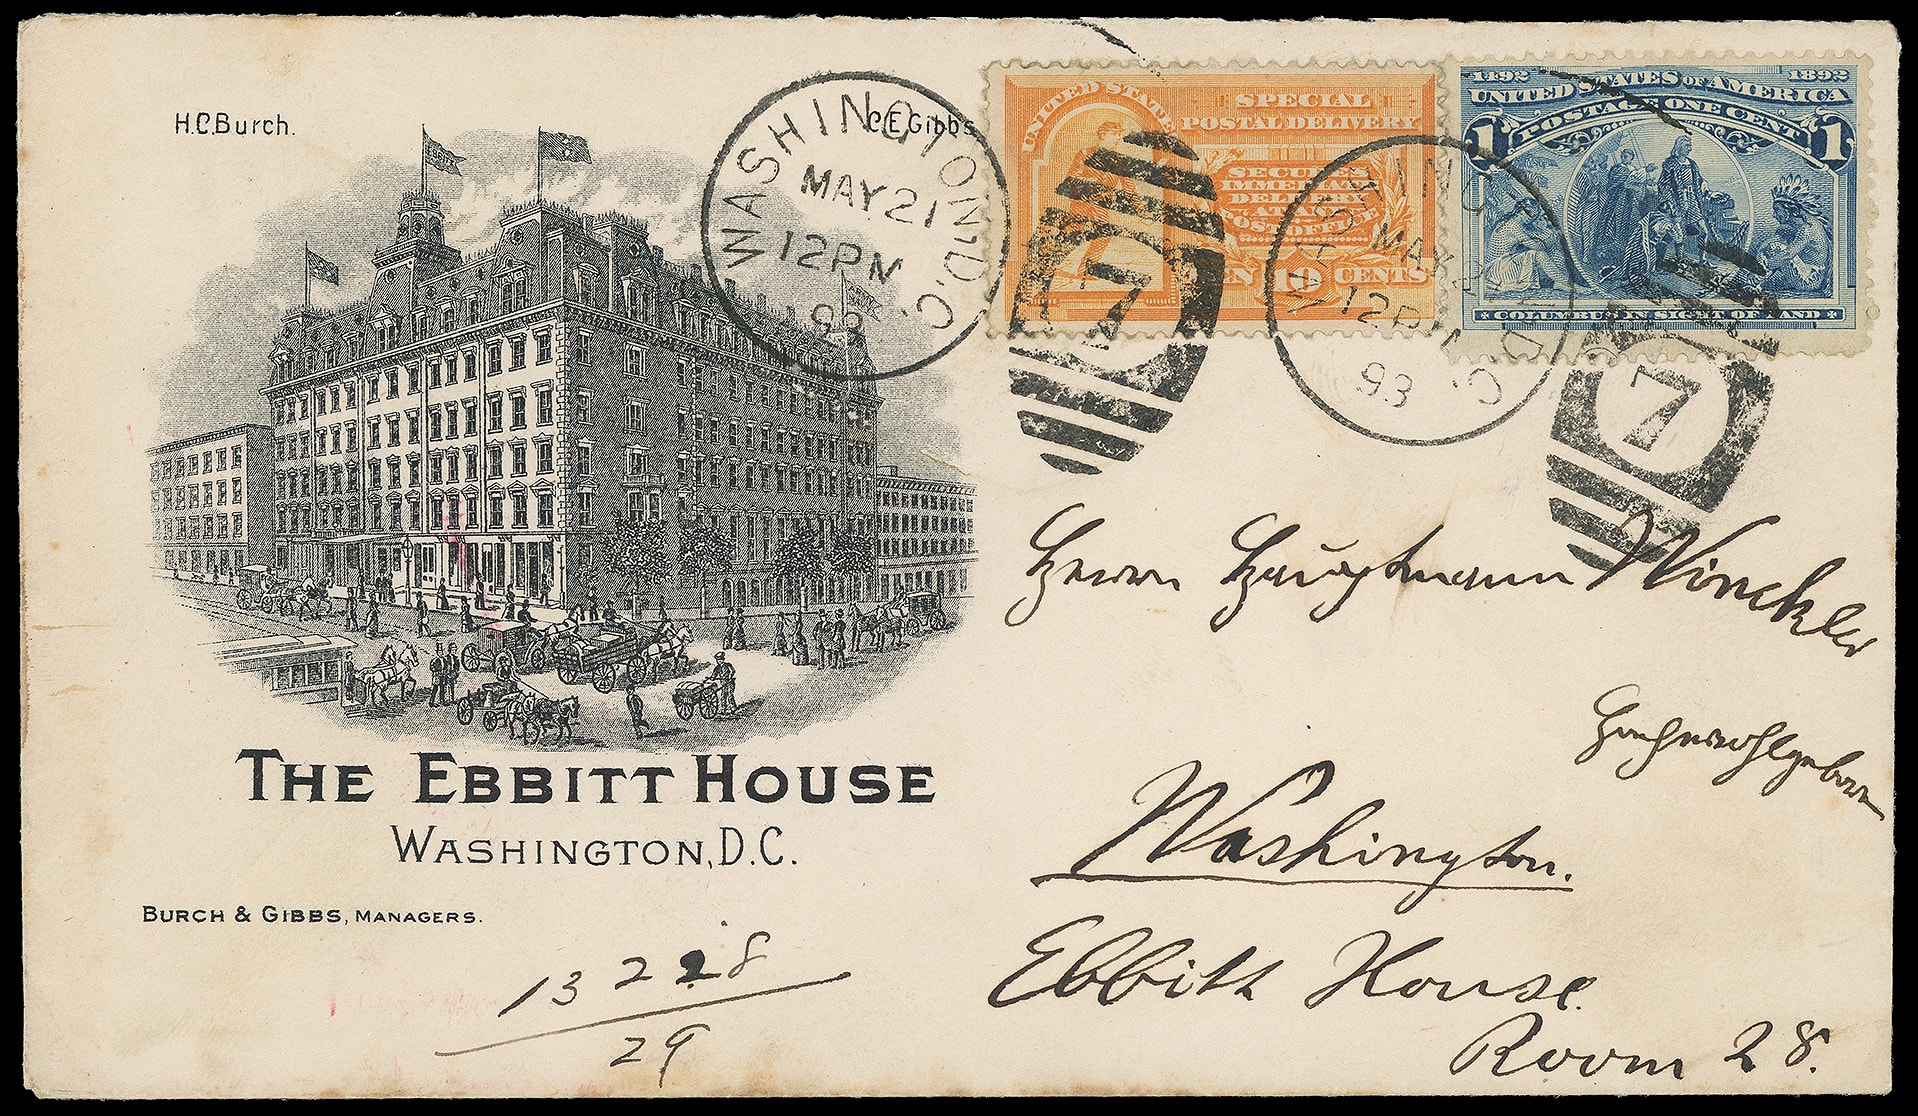 H.C.Burch.
C.E.Gibbs
WASHINGTON, D.C.
MAY 21
12PM
93
UNITED STATES
SPECIAL
POSTAL DELIVERY
SECURES
IMMEDIATE
DELIVERY
AT ANY
POST OFFICE
TEN 10 CENTS
7
WASHINGTON, D.C.
MAY 21
12PM
93
7
1492 1892
UNITED STATES OF AMERICA
POSTAGE ONE CENT
1 1
COLUMBUS IN SIGHT OF LAND
EBBITT
Herrn Hauptmann Winckler
Hochwohlgeboren
Washington.
Ebbitt House.
Room 28.
THE EBBITT HOUSE
WASHINGTON, D.C.
BURCH & GIBBS, MANAGERS.
13228
29